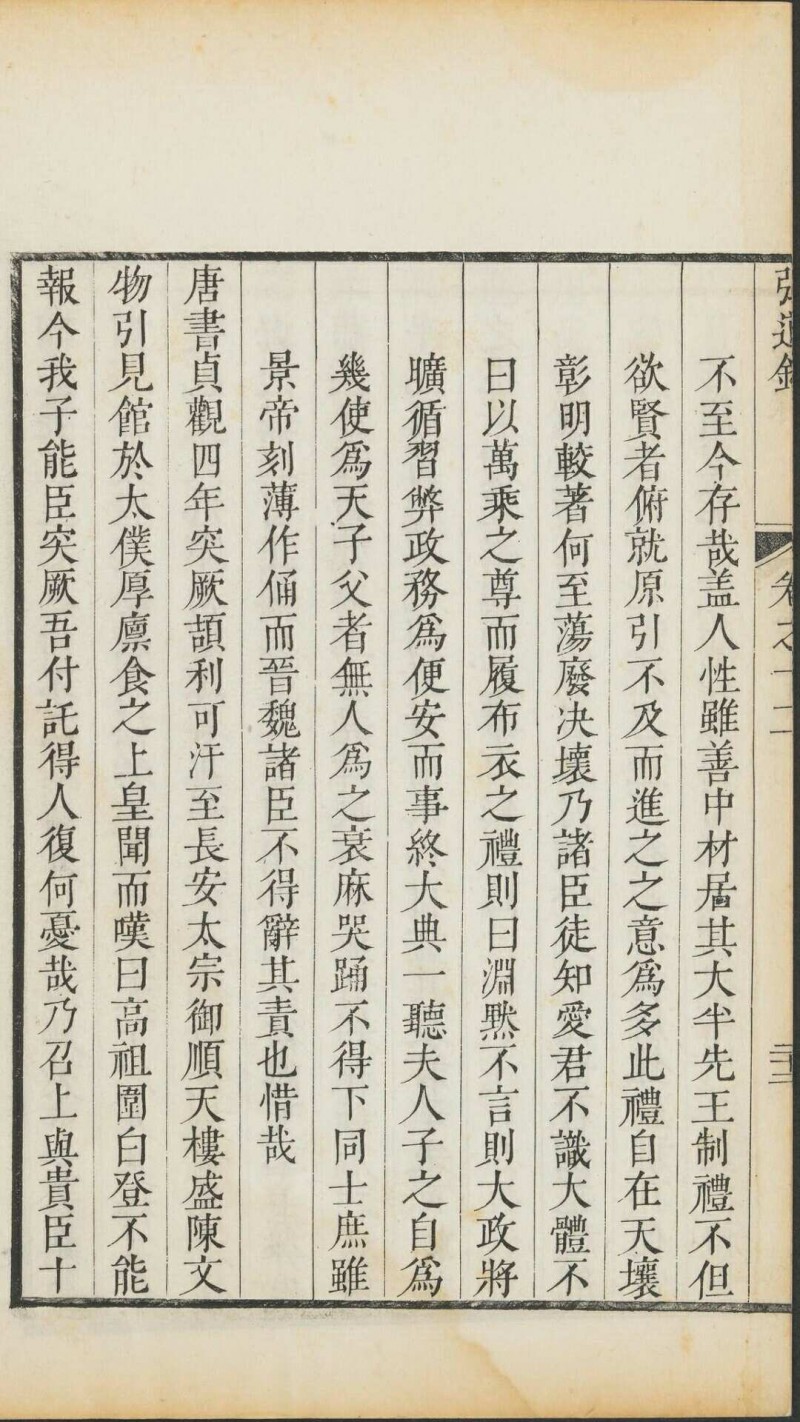 弘道錄 卷之十二
不至今存哉盖人性雖善中材居其大半先王制禮不但
欲賢者俯就原引不及而進之之意為多此禮自在天壤
彰明較著何至蕩廢決壞乃諸臣徒知愛君不識大體不
曰以萬乘之尊而履布衣之禮則曰淵黙不言則大政將
曠循習弊政務為便安而事終大典一聽夫人子之自為
幾使為天子父者無人為之衰麻哭踊不得下同士庶雖
景帝刻薄作俑而晉魏諸臣不得辭其責也惜哉
唐書貞觀四年突厥頡利可汗至長安太宗御順天樓盛陳文
物引見館於太僕厚廪食之上皇聞而嘆曰高祖圍白登不能
報今我子能臣突厥吾付託得人復何憂哉乃召上與貴臣十